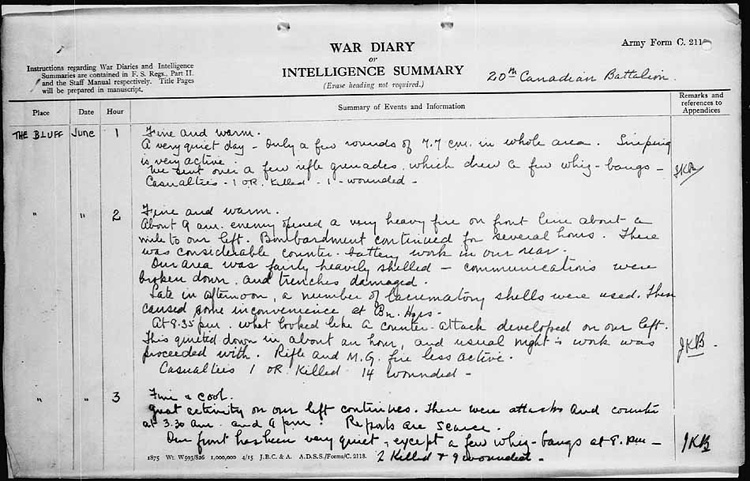 WAR DIARY
or
INTELLIGENCE SUMMARY
(Erase heading not required.)
Army Form C. 2118
20th Canadian Battalion.
Instructions regarding War Diaries and Intelligence
Summaries are contained in F. S. Regs., Part II.
and the Staff Manual respectively. Title Pages
will be prepared in manuscript.
Place Date Hour Summary of Events and Information Remarks and references to Appendices
THE BLUFF June 1 Fine and warm.
A very quiet day - Only a few rounds of 7.7 cm. in whole area. Sniping
is very active.
We sent over a few rifle grenades, which drew a few whiz-bangs -
Casualties - 1 OR. Killed - 1 - wounded - JKB
" " 2 Fine and warm.
About 9 am. enemy opened a very heavy fire on front line about a
mile to our left. Bombardment continued for several hours. There
was considerable counter-battery work in our rear.
Our area was fairly heavily shelled - communications were
broken down, and trenches damaged.
Late in afternoon, a number of lacrematory shells were used. These
caused some inconvenience at Bn. Hqrs.
At 8.35 pm. what looked like a counter-attack developed on our left.
This quieted down in about an hour, and usual night's work was
proceeded with. Rifle and M.G. fire less active.
Casualties 1 OR Killed 14 wounded - JKB.
" " 3 Fine & cool.
Great activity on our left continues. There were attacks and counter
at 3.30 am. and 9 pm. Reports are scarce.
Our front has been very quiet, except a few whiz-bangs at 8. pm -
2 Killed & 9 wounded. JKB
1875 Wt. W593/826 1,000,000 4/15 J.B.C. & A. A.D.S.S./Forms/C. 2118.